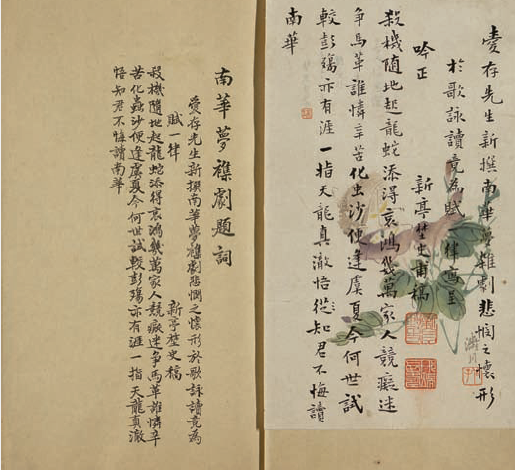 存先生新撰南華夢雜劇悲憫之懷形
於歌詠讀竟為賦一律寫呈
吟正
新亭埜史甫稿
殺機隨地起龍蛇添得哀鴻幾萬家人競癡迷
爭馬革誰憐辛苦化虫沙便逢虞夏今何世試
較彭殤亦有涯一指天龍真澈悟從知君不悔讀
南華
南華夢襍劇題詞
存先生新撰南華夢襍劇悲憫之懷形於歌詠讀竟為
賦一律 新亭埜史稿
殺機隨地起龍蛇添得哀鴻幾萬家人競癡迷爭馬革誰憐辛
苦化蟲沙便逢虞夏今何世試較彭殤亦有涯一指天龍真澈
悟知君不悔讀南華